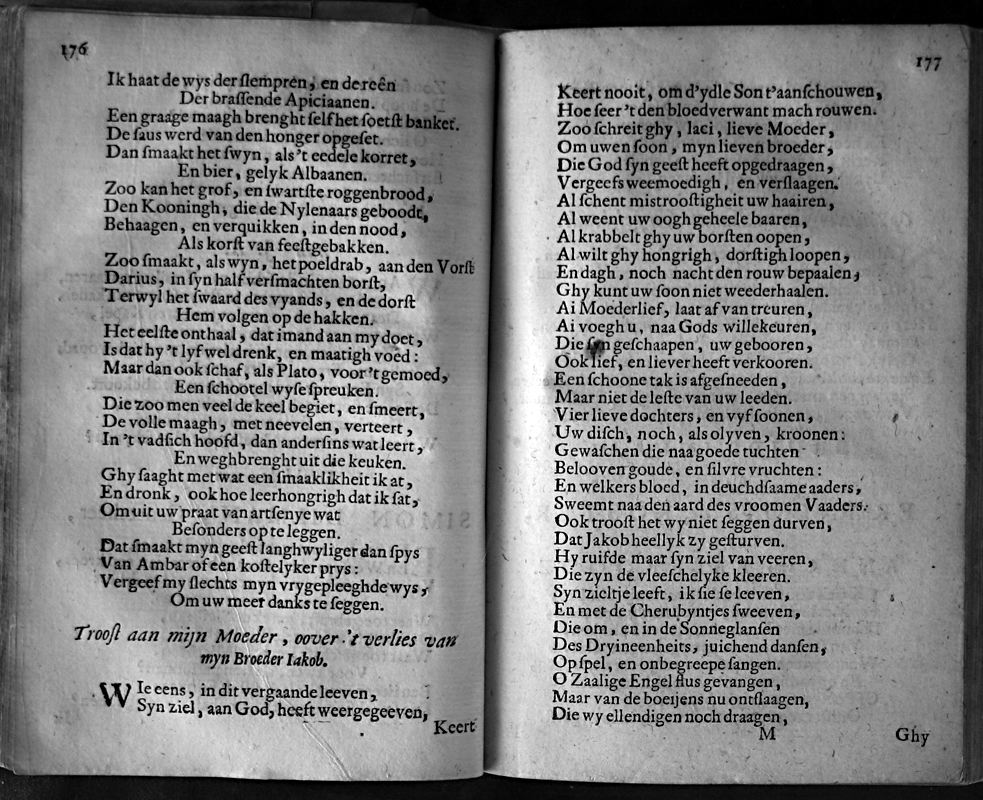 176
Ik haat de wys der slempren, en de reên
Der brassende Apiciaanen.
Een graage maagh brenght self het soetst banket.
De saus werd van den honger opgeset.
Dan smaakt het swyn, als 't eedele korret,
En bier, gelyk Albaanen.
Zoo kan het grof, en swartste roggenbrood,
Den Kooningh, die de Nylenaars geboodt,
Behaagen, en verquikken, in den nood,
Als korst van feestgebakken.
Zoo smaakt, als wyn, het poeldrab, aan den Vorst
Darius, in syn half versmachten borst,
Terwyl het swaard des vyands, en de dorst
Hem volgen op de hakken.
Het eelste onthaal, dat imand aan my doet,
Is dat hy 't lyf wel drenk, en maatigh voed:
Maar dan ook schaf, als Plato, voor 't gemoed,
Een schootel wyse spreuken.
Die zoo men veel de keel begiet, en smeert,
De volle maagh, met neevelen, verteert,
In 't vadsich hoofd, dan andersins wat leert,
En weghbrenght uit die keuken.
Ghy saaght met wat een smaaklikheit ik at,
En dronk, ook hoe leerhongrigh dat ik sat,
Om uit uw praat van artsenye wat
Besonders op te leggen.
Dat smaakt myn geest langhwyliger dan spys
Van Ambar of een kostelyker prys:
Vergeef my slechts myn vrygepleeghde wys,
Om uw meer danks te seggen.
Troost aan mijn Moeder, oover 't verlies van
myn Broeder Iakob.
WIe eens, in dit vergaande leeven,
Syn ziel, aan God, heeft weergegeeven,
Keert
177
Keert nooit, om d'ydle Son t'aanschouwen,
Hoe seer 't den bloedverwant mach rouwen.
Zoo schreit ghy, laci, lieve Moeder,
Om uwen soon, myn lieven broeder,
Die God syn geest heeft opgedraagen,
Vergeefs weemoedigh, en verslaagen.
Al schent mistroostigheit uw haairen,
Al weent uw oogh geheele baaren,
Al krabbelt ghy uw borsten oopen,
Al wilt ghy hongrigh, dorstigh loopen,
En dagh, noch nacht den rouw bepaalen,
Ghy kunt uw soon niet weederhaalen.
Ai Moederlief, laat af van treuren,
Ai voegh u, naa Gods willekeuren,
Die syn geschaapen, uw gebooren,
Ook lief, en liever heeft verkooren.
Een schoone tak is afgesneeden,
Maar niet de leste van uw leeden.
Vier lieve dochters, en vyf soonen,
Uw disch, noch, als olyven, kroonen:
Gewaschen die naa goede tuchten
Belooven goude, en silvre vruchten:
En welkers bloed, in deuchdsaame aaders,
Sweemt naa den aard des vroomen Vaaders.
Ook troost het wy niet seggen durven,
Dat Jakob heellyk zy gesturven.
Hy ruifde maar syn ziel van veeren,
Die zyn de vleeschelyke kleeren.
Syn zieltje leeft, ik sie se leeven,
En met de Cherubyntjes sweeven,
Die om, en in de Sonneglansen
Des Dryineenheits, juichend dansen,
Op spel, en onbegreepe sangen.
O Zaalige Engel flus gevangen,
Maar van de boeijens nu ontslaagen,
Die wy ellendigen noch draagen,
M
Ghy